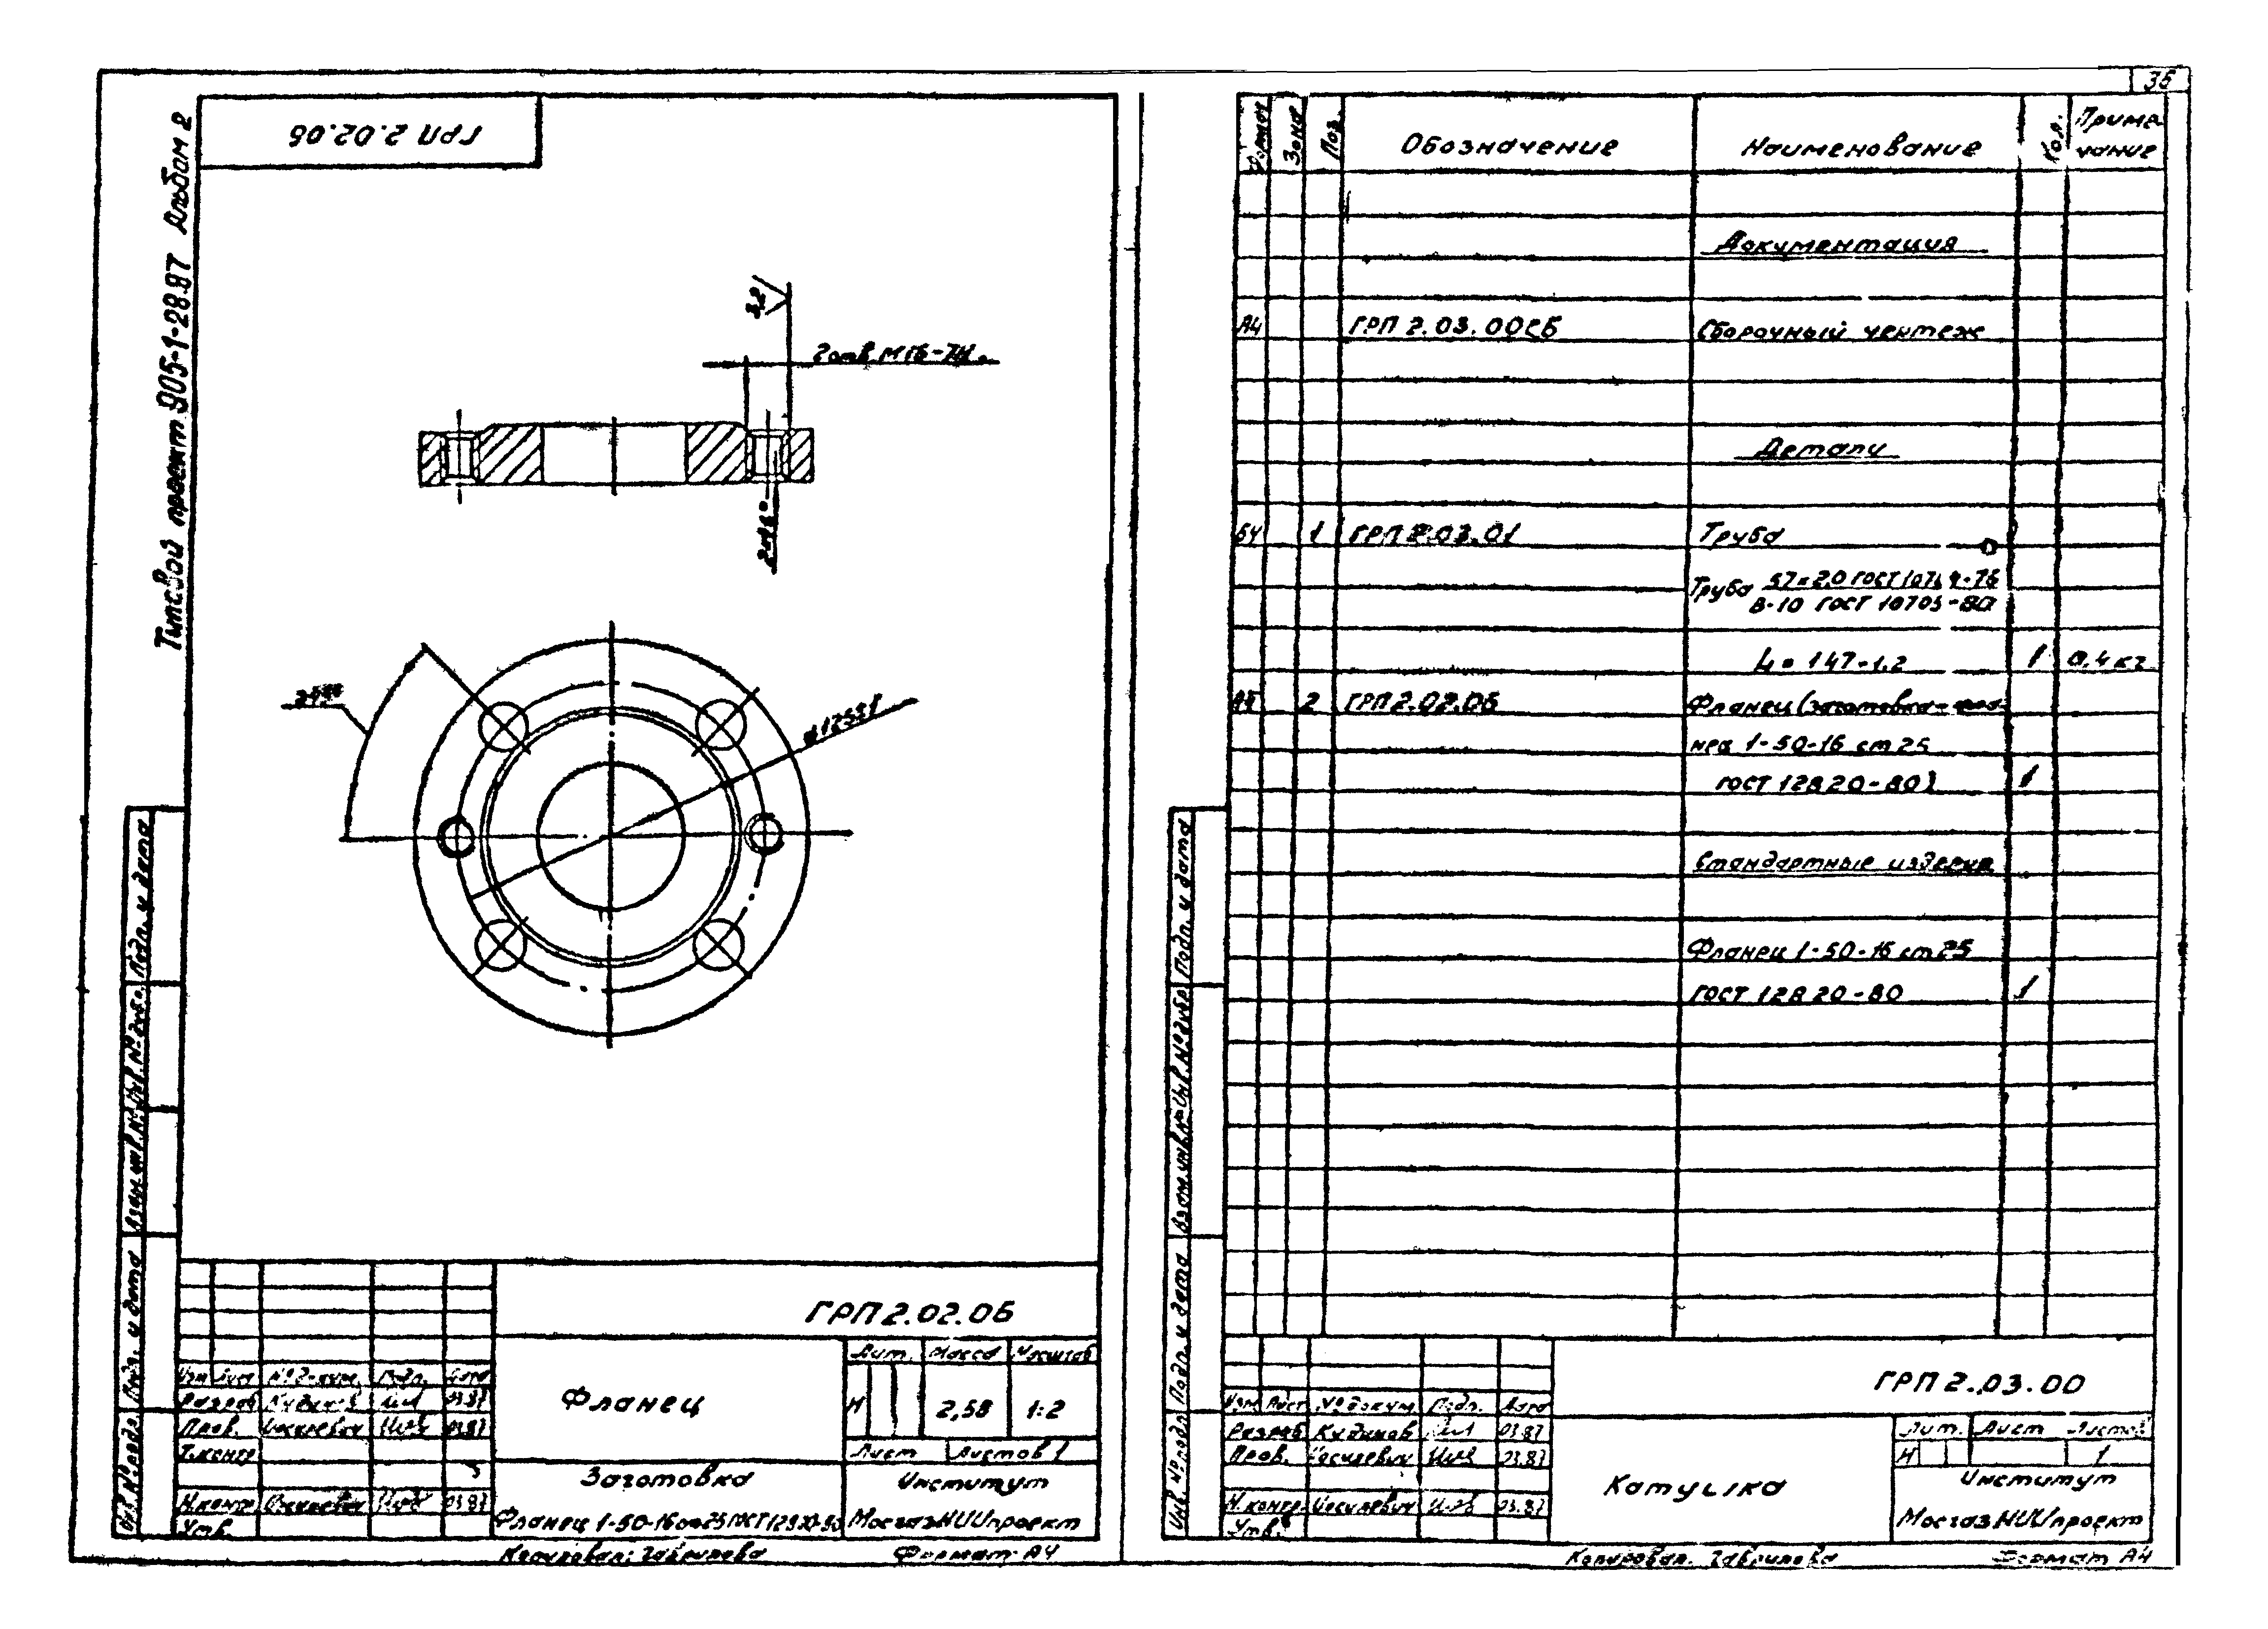 36
Типовой проект 905-1-28.87 Альбом 2
ГРП 2.02.06
3,2
2 отв. М16-7Н
⌀125±1
Подп. и дата
Инв. № дубл.
Взам. инв. №
Подп. и дата
Инв. № подл.
ГРП 2.02.06
Изм Лист № докум. Подп. Дата
Разраб Кудинов 03.87
Пров. Иоселевич 03.87
Т.контр
Н.контр Иоселевич 03.87
Утв.
Фланец
Лит. Масса Масштаб
И 2,58 1:2
Лист Листов 1
Заготовка
Фланец 1-50-16 ст 25 ГОСТ 12820-80
Институт
МосгазНИИпроект
Копировал: Гаврилова Формат А4
Формат Зона Поз. Обозначение Наименование Кол. Приме
чание
Документация
А4 ГРП 2.03.00СБ Сборочный чертеж
Детали
БЧ 1 ГРП 2.03.01 Труба
Труба 57×2,0 ГОСТ 10704-76
В-10 ГОСТ 10705-80
L = 147-1,2 1 0,4 кг
А4 2 ГРП 2.02.06 Фланец (заготовка-фла-
нец 1-50-16 ст 25
ГОСТ 12820-80) 1
Стандартные изделия
Фланец 1-50-16 ст 25
ГОСТ 12820-80 1
Подп. и дата
Инв. № дубл.
Взам. инв. №
Подп. и дата
Инв. № подл.
ГРП 2.03.00
Изм Лист № докум. Подп. Дата
Разраб Кудинов 03.87
Пров. Иоселевич 03.87
Н.контр Иоселевич 03.87
Утв.
Катушка
Лит. Лист Листов
И 1
Институт
МосгазНИИпроект
Копировал. Гаврилова Формат А4